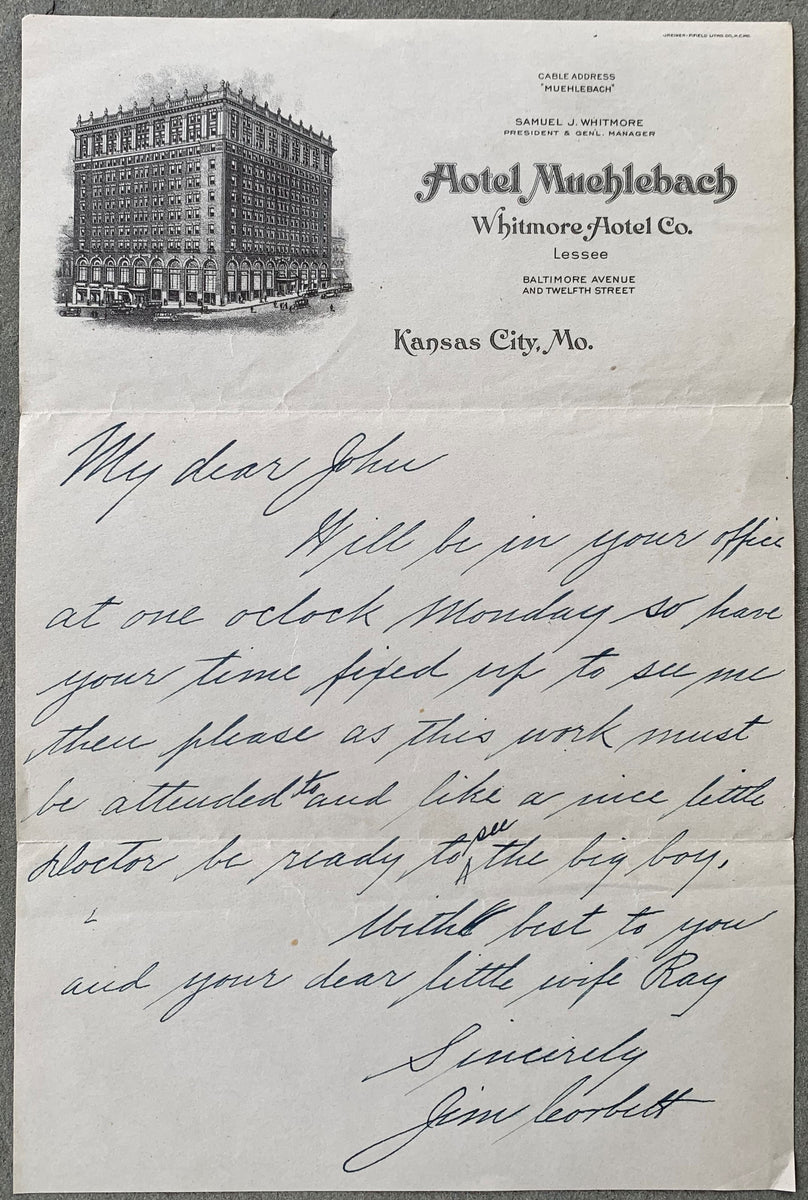 GREINER-FIFIELD LITHO. CO., K.C. MO.
CABLE ADDRESS
"MUEHLEBACH"
SAMUEL J. WHITMORE
PRESIDENT & GEN'L. MANAGER
Hotel Muehlebach
Whitmore Hotel Co.
Lessee
BALTIMORE AVENUE
AND TWELFTH STREET
Kansas City, Mo.
My dear John
Will be in your office
at one oclock Monday so have
your time fixed up to see me
then please as this work must
be attended to and like a nice little
Doctor be ready to see the big boy.
With best to you
and your dear little wife Ray
Sincerely
Jim Corbett